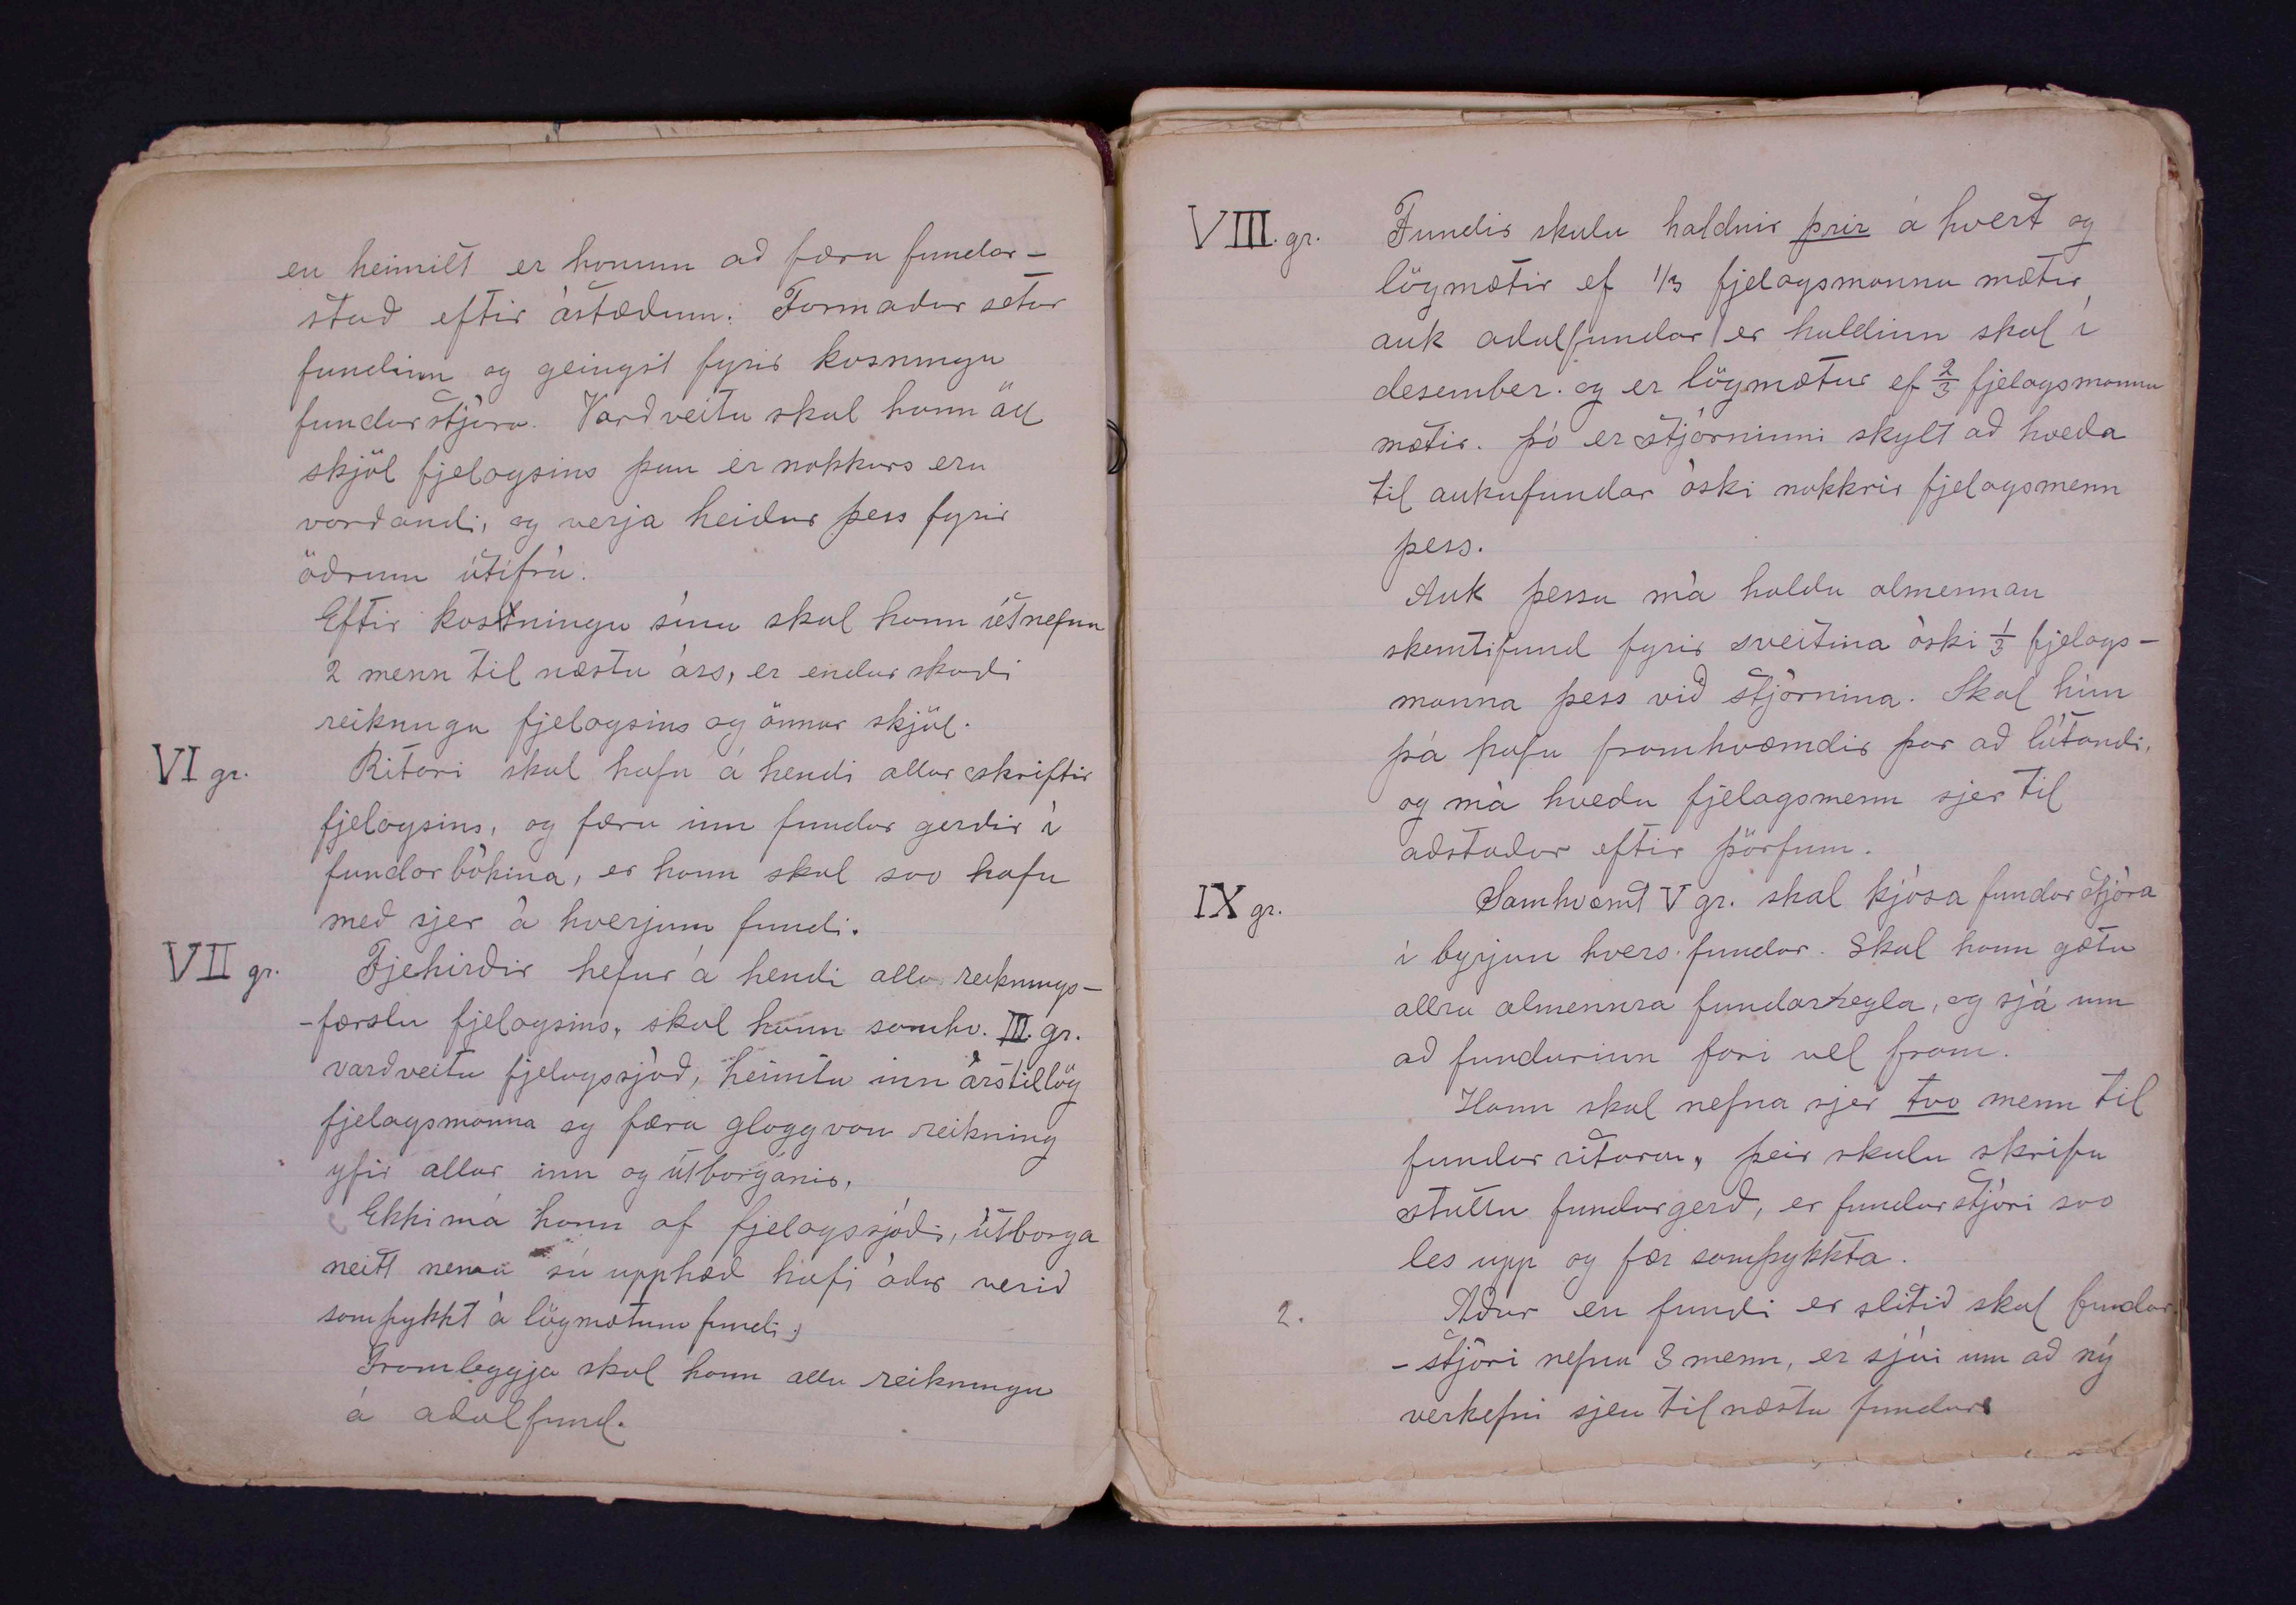 en heimilt er honum að færa fundar-
stað eftir ástæðum. Formaður setur
fundinn og geingst fyrir kosningu
fundarstjóra. Varðveita skal hann öll
skjöl fjelagsins þau er nokkurs eru
varðandi, og verja heiður þess fyrir
öðrum útífrá.
Eftir kostningu sína skal hann útnefna
2 menn til næsta árs, er endurskoði
reikninga fjelagsins og önnur skjöl.
VI gr. Ritari skal hafa á hendi allar skriftir
fjelagsins, og færa inn fundar gerðir í
fundarbókina, er hann skal svo hafa
með sjer á hverjum fundi.
VII gr. Fjehirðir hefur á hendi alla reiknings-
-færslu fjelagsins, skal hann samhv. III. gr.
varðveita fjelagssjóð, heimta inn árstillög
fjelagsmanna og færa gloggvan reikning
yfir allar inn og útborganir.
Ekki má hann af fjelagssjóði, útborga
neitt nema sú upphæð hafi áður verið
samþykkt á lögmætum fundi.
Framleggja skal hann alla reikninga
á aðalfund.
VIII. gr. Fundir skulu haldnir þrir á hvert og
lögmætir ef 1/3 fjelagsmanna mætir,
auk aðalfundar er haldinn skal í
desember. og er lögmætur ef 2/3 fjelagsmanna
mætir. Þó er stjórninni skylt að kveða
til aukafundar óski nokkrir fjelagsmenn
þess.
Auk þessa má halda almennan
skemtifund fyrir sveitina óski 1/3 fjelags-
manna þess við stjórnina. Skal hún
þá hafa framkvæmdir þar að lútandi,
og má kveða fjelagsmenn sjer til
aðstoðar eftir þörfum.
IX gr. Samkvæmt V gr. skal kjósa fundarstjóra
í byrjun hvers fundar. Skal hann gæta
allra almennra fundarregla, og sjá um
að fundurinn fari vel fram.
Hann skal nefna sjer tvo menn til
fundar ritara, þeir skulu skrifa
stutta fundargerð, er fundarstjóri svo
les upp og fær samþykkta.
2. Aður en fundi er slitið skal fundar-
-stjóri nefna 3 menn, er sjái um að ný
verkefni sjeu til næsta fundar